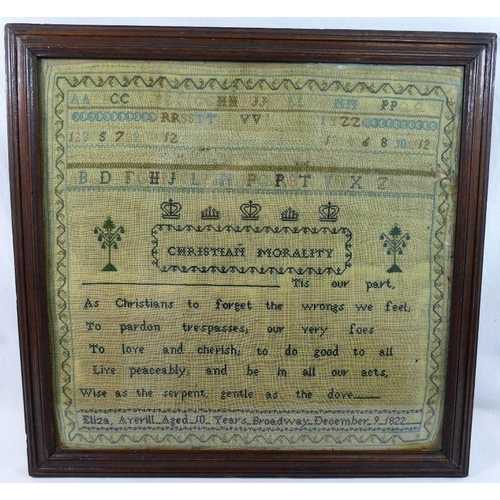 AA CC HH JJ NN PP
RRSSTT VV ZZ
B D F H J L N P R T V X Z
CHRISTIAN MORALITY
Tis our part,
As Christians to forget the wrongs we feel;
To pardon trespasses; our very foes
To love and cherish; to do good to all
Live peaceably; and be in all our acts,
Wise as the serpent, gentle as the dove
Eliza, Averill Aged 10 Years Broadway December 9 1822